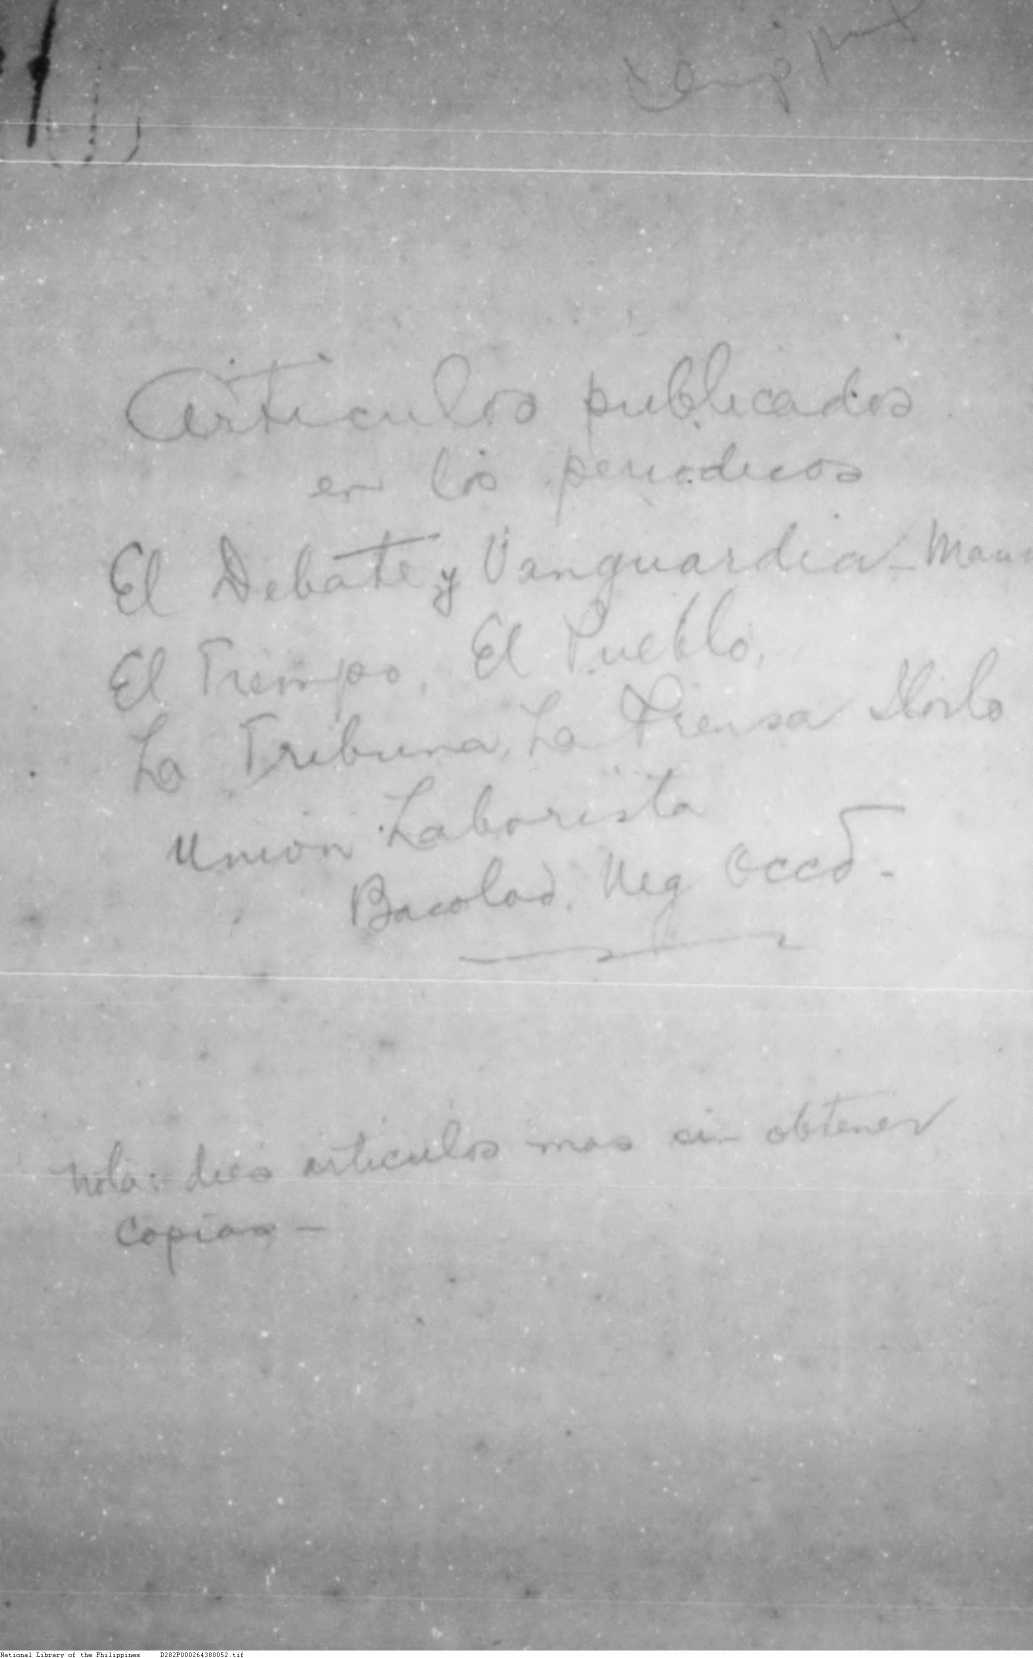 Articulos publicados
en los periodicos
El Debate y Vanguardia -
El Tiempo, El Pueblo,
La Tribuna, La Prensa Iloilo
Union Laborista
Bacolod. Neg Occd -
Nota: dies articulos mas sin obtener
copias -
National Library of the Philippines D282P000264388052.tif